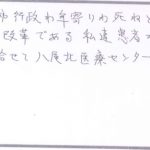 市行政わ年寄りわ死ねと
改革である 私達患者
合せて八尾北医療センター